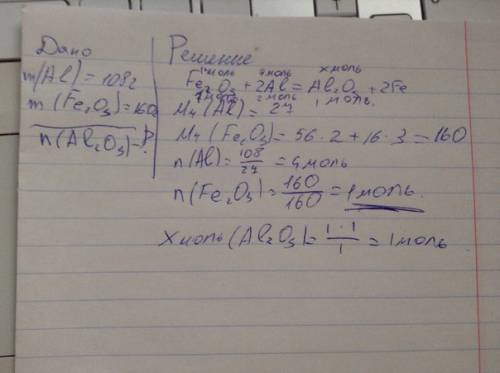 Дано
m(Al)=108г
m(Fe₂O₃)=160г
n(Al₂O₃)-?
Решение
1моль 4моль xмоль
Fe₂O₃+2Al=Al₂O₃+2Fe
1моль 2моль 1моль.
Mr(Al)=27
Mr(Fe₂O₃)=56·2+16·3=160
n(Al)=108/27=4моль
n(Fe₂O₃)=160/160=1моль.
Xмоль(Al₂O₃)=1·1/1=1моль